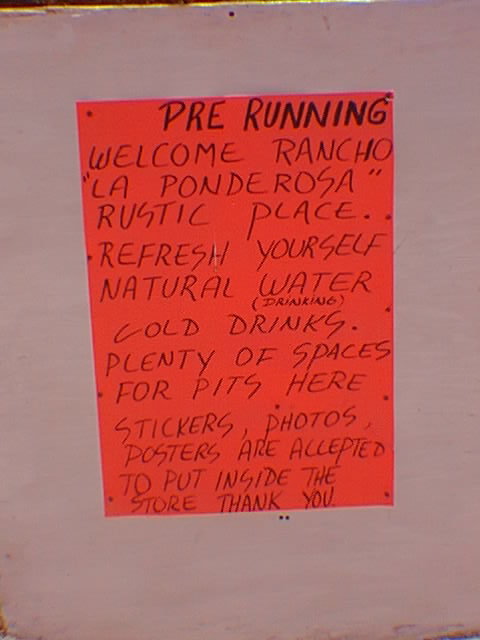 PRE RUNNING
WELCOME RANCHO
"LA PONDEROSA"
RUSTIC PLACE.
REFRESH YOURSELF
NATURAL WATER
(DRINKING)
COLD DRINKS.
PLENTY OF SPACES
FOR PITS HERE
STICKERS, PHOTOS,
POSTERS ARE ACCEPTED
TO PUT INSIDE THE
STORE THANK YOU